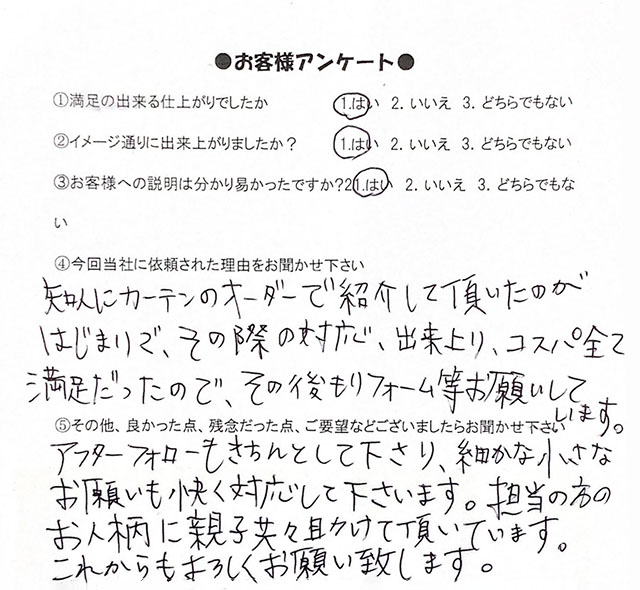 ●お客様アンケート●
①満足の出来る仕上がりでしたか 1.はい 2.いいえ 3.どちらでもない
②イメージ通りに出来上がりましたか？ 1.はい 2.いいえ 3.どちらでもない
③お客様への説明は分かり易かったですか?21.はい 2.いいえ 3.どちらでもな
い
④今回当社に依頼された理由をお聞かせ下さい
知人にカーテンのオーダーで紹介して頂いたのが
はじまりで、その際の対応、出来上り、コスパ全て
満足だったので、その後もリフォーム等お願いして
います。
⑤その他、良かった点、残念だった点、ご要望などございましたらお聞かせ下さい
アフターフォローもきちんとして下さり、細かな小さな
お願いも快く対応して下さいます。担当の方の
お人柄に親子共々助けて頂いています。
これからもよろしくお願い致します。